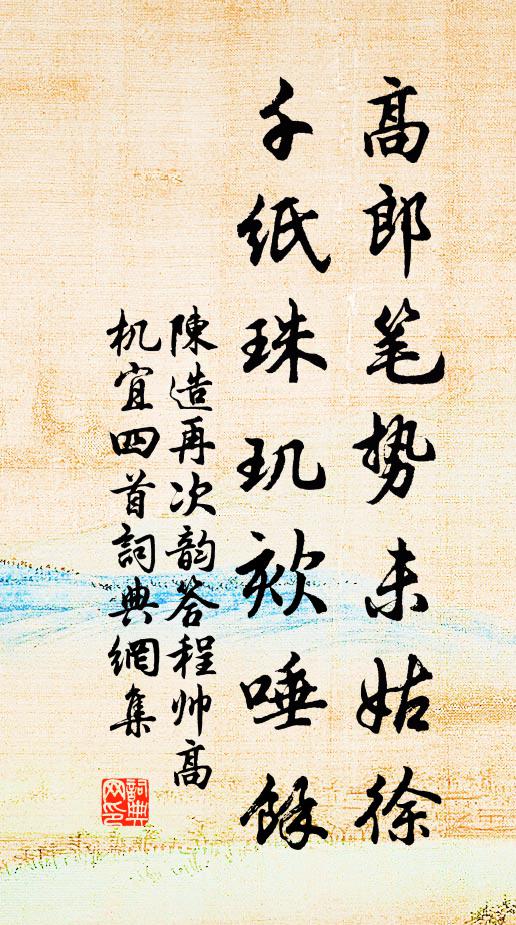 高郎笔势未姑徐
千纸珠玑欬唾餘
陳造再次韵答程帅高
机宜四首詞典網集
詞典
网印